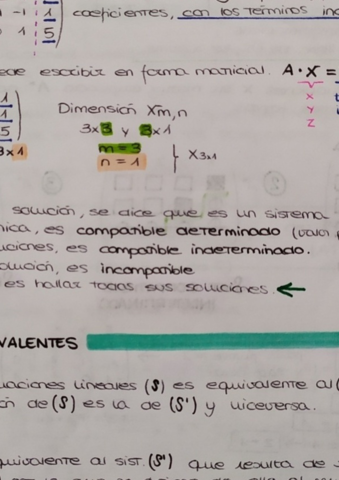 -1 1 coeficientes, con los términos in
0 1 5
escribir en forma matricial. A·X =
1
1
5
3x1
Dimensión Xm,n
3x3 y 3x1
m=3
n=1
X3x1
X
Y
Z
solución, se dice que es un sistema
es compatible determinado
uciones, es compatible indeterminado.
olución, es incompatible
es hallar todas sus soluciones. ←
VALENTES
uaciones lineales (S) es equivalente al (
ón de (S) es la de (S') y viceversa.
quivalente al sist. (S') que resulta de